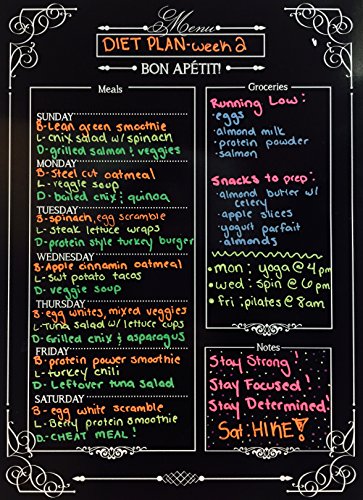 Menu
DIET PLAN-week 2
BON APÉTIT!
Meals
SUNDAY
B-Lean green smoothie
L-chix salad w/ spinach
D-grilled salmon & veggies
MONDAY
B-Steel cut oatmeal
L-veggie soup
D-boiled chix & quinoa
TUESDAY
B-spinach, egg scramble
L-steak lettuce wraps
D-protein style turkey burger
WEDNESDAY
B-Apple cinnamin oatmeal
L-swt potato tacos
D-veggie soup
THURSDAY
B-egg whites, mixed veggies
L-Tuna salad w/ lettuce cups
D-Grilled chix & asparagus
FRIDAY
B-protein power smoothie
L-turkey chili
D-Leftover tuna salad
SATURDAY
B-egg white scramble
L-Berry protein smoothie
D-CHEAT MEAL!
Groceries
Running Low:
-eggs
-almond milk
-protein powder
-salmon
Snacks to prep:
-almond butter w/
celery
-apple slices
-yogurt parfait
-almonds
•mon: yoga @ 4pm
•wed: spin @ 6pm
•fri: pilates @ 8am
Notes
Stay Strong!
Stay Focused!
Stay Determined!
Sat. HIKE!